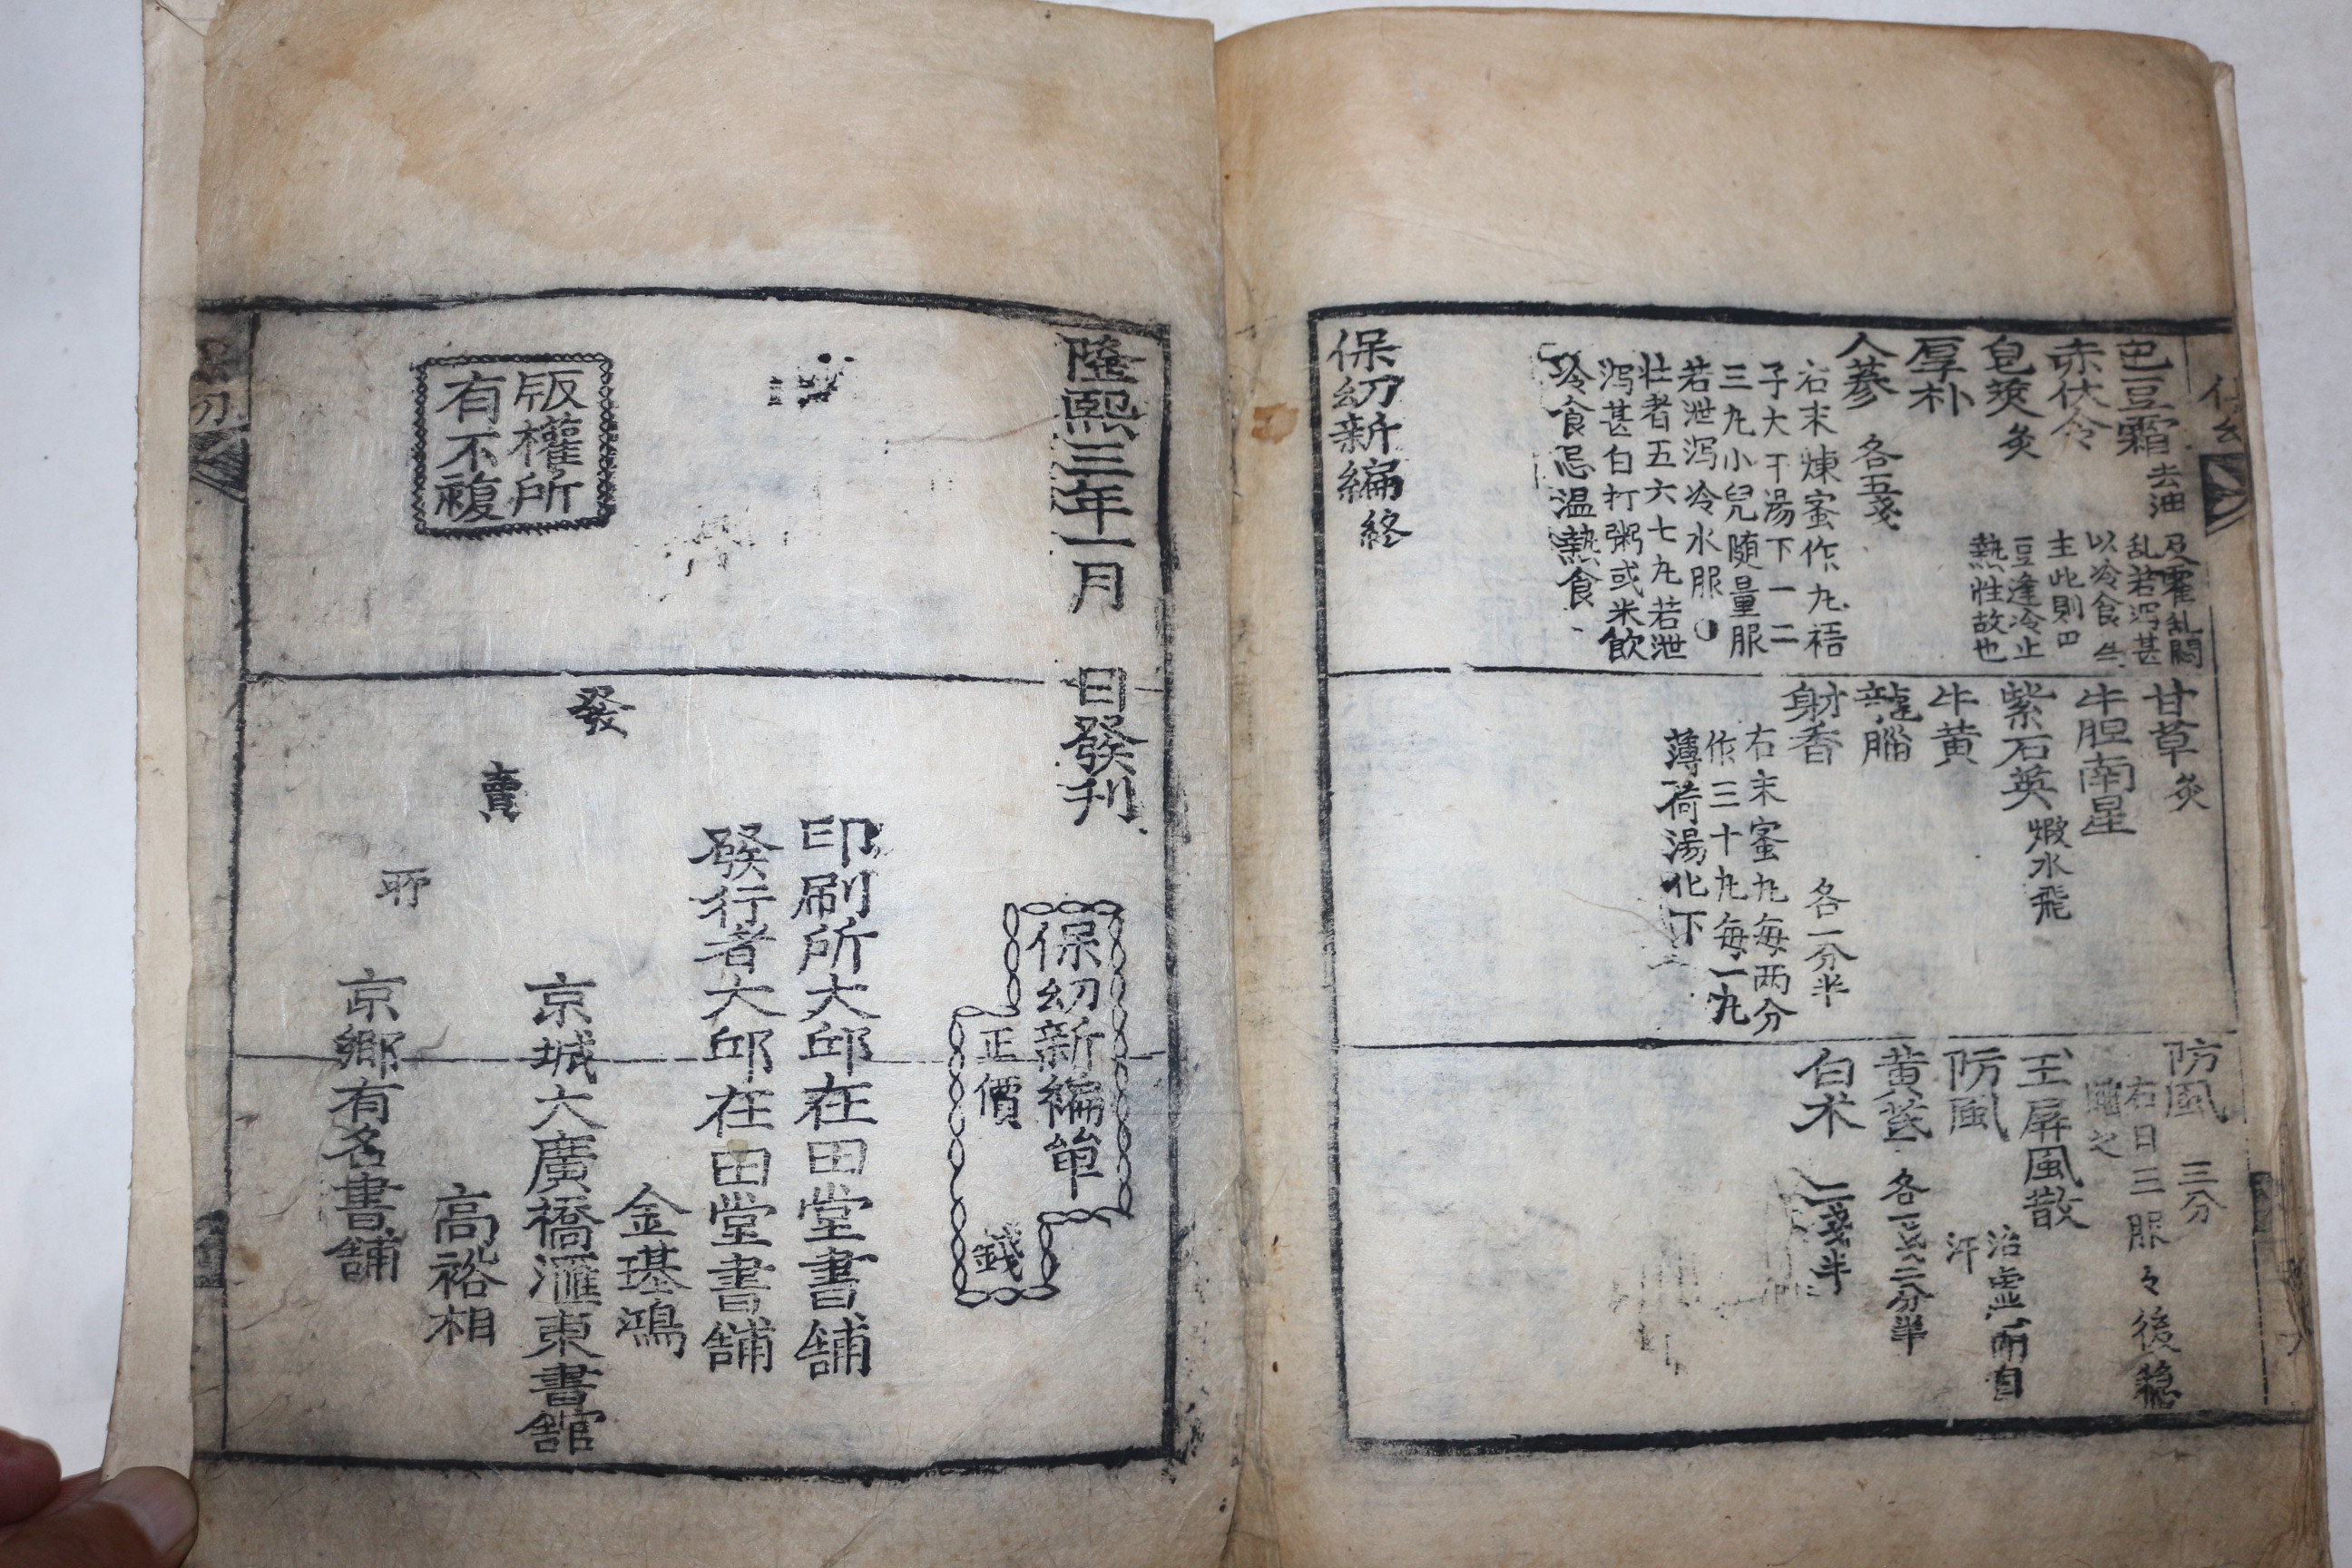 巴豆霜去油
赤伏令
皂莢灸
厚朴
人蔘 各五戔
右末煉蜜作九梧
子大干湯下一二
三九小兒随量服
若泄泻冷水服
壮者五六七九若泄
泻甚白打粥或米飲
冷食忌温熱食
及霍乱関
乱若泻甚
以冷食
主此則
豆逢冷止
熱性故也
保幼新編終
甘草灸
牛胆南星
紫石英煆水飛
牛黄
龍腦
射香 各一分半
右末蜜九每两分
作三十九每一九
薄荷湯化下
防風 三分
右日三服
之
玉屏風散 治虚而自
汗
防風
黄芪 各一戔二分半
白术 二戔半
隆熙三年一月 日發刊
版權所
有不複
保幼新編單
正價 錢
印刷所大邱在田堂書舖
發行者大邱在田堂書舖
金璂鴻
發
賣
所
京城大廣橋滙東書舘
高裕相
京鄉有名書舖